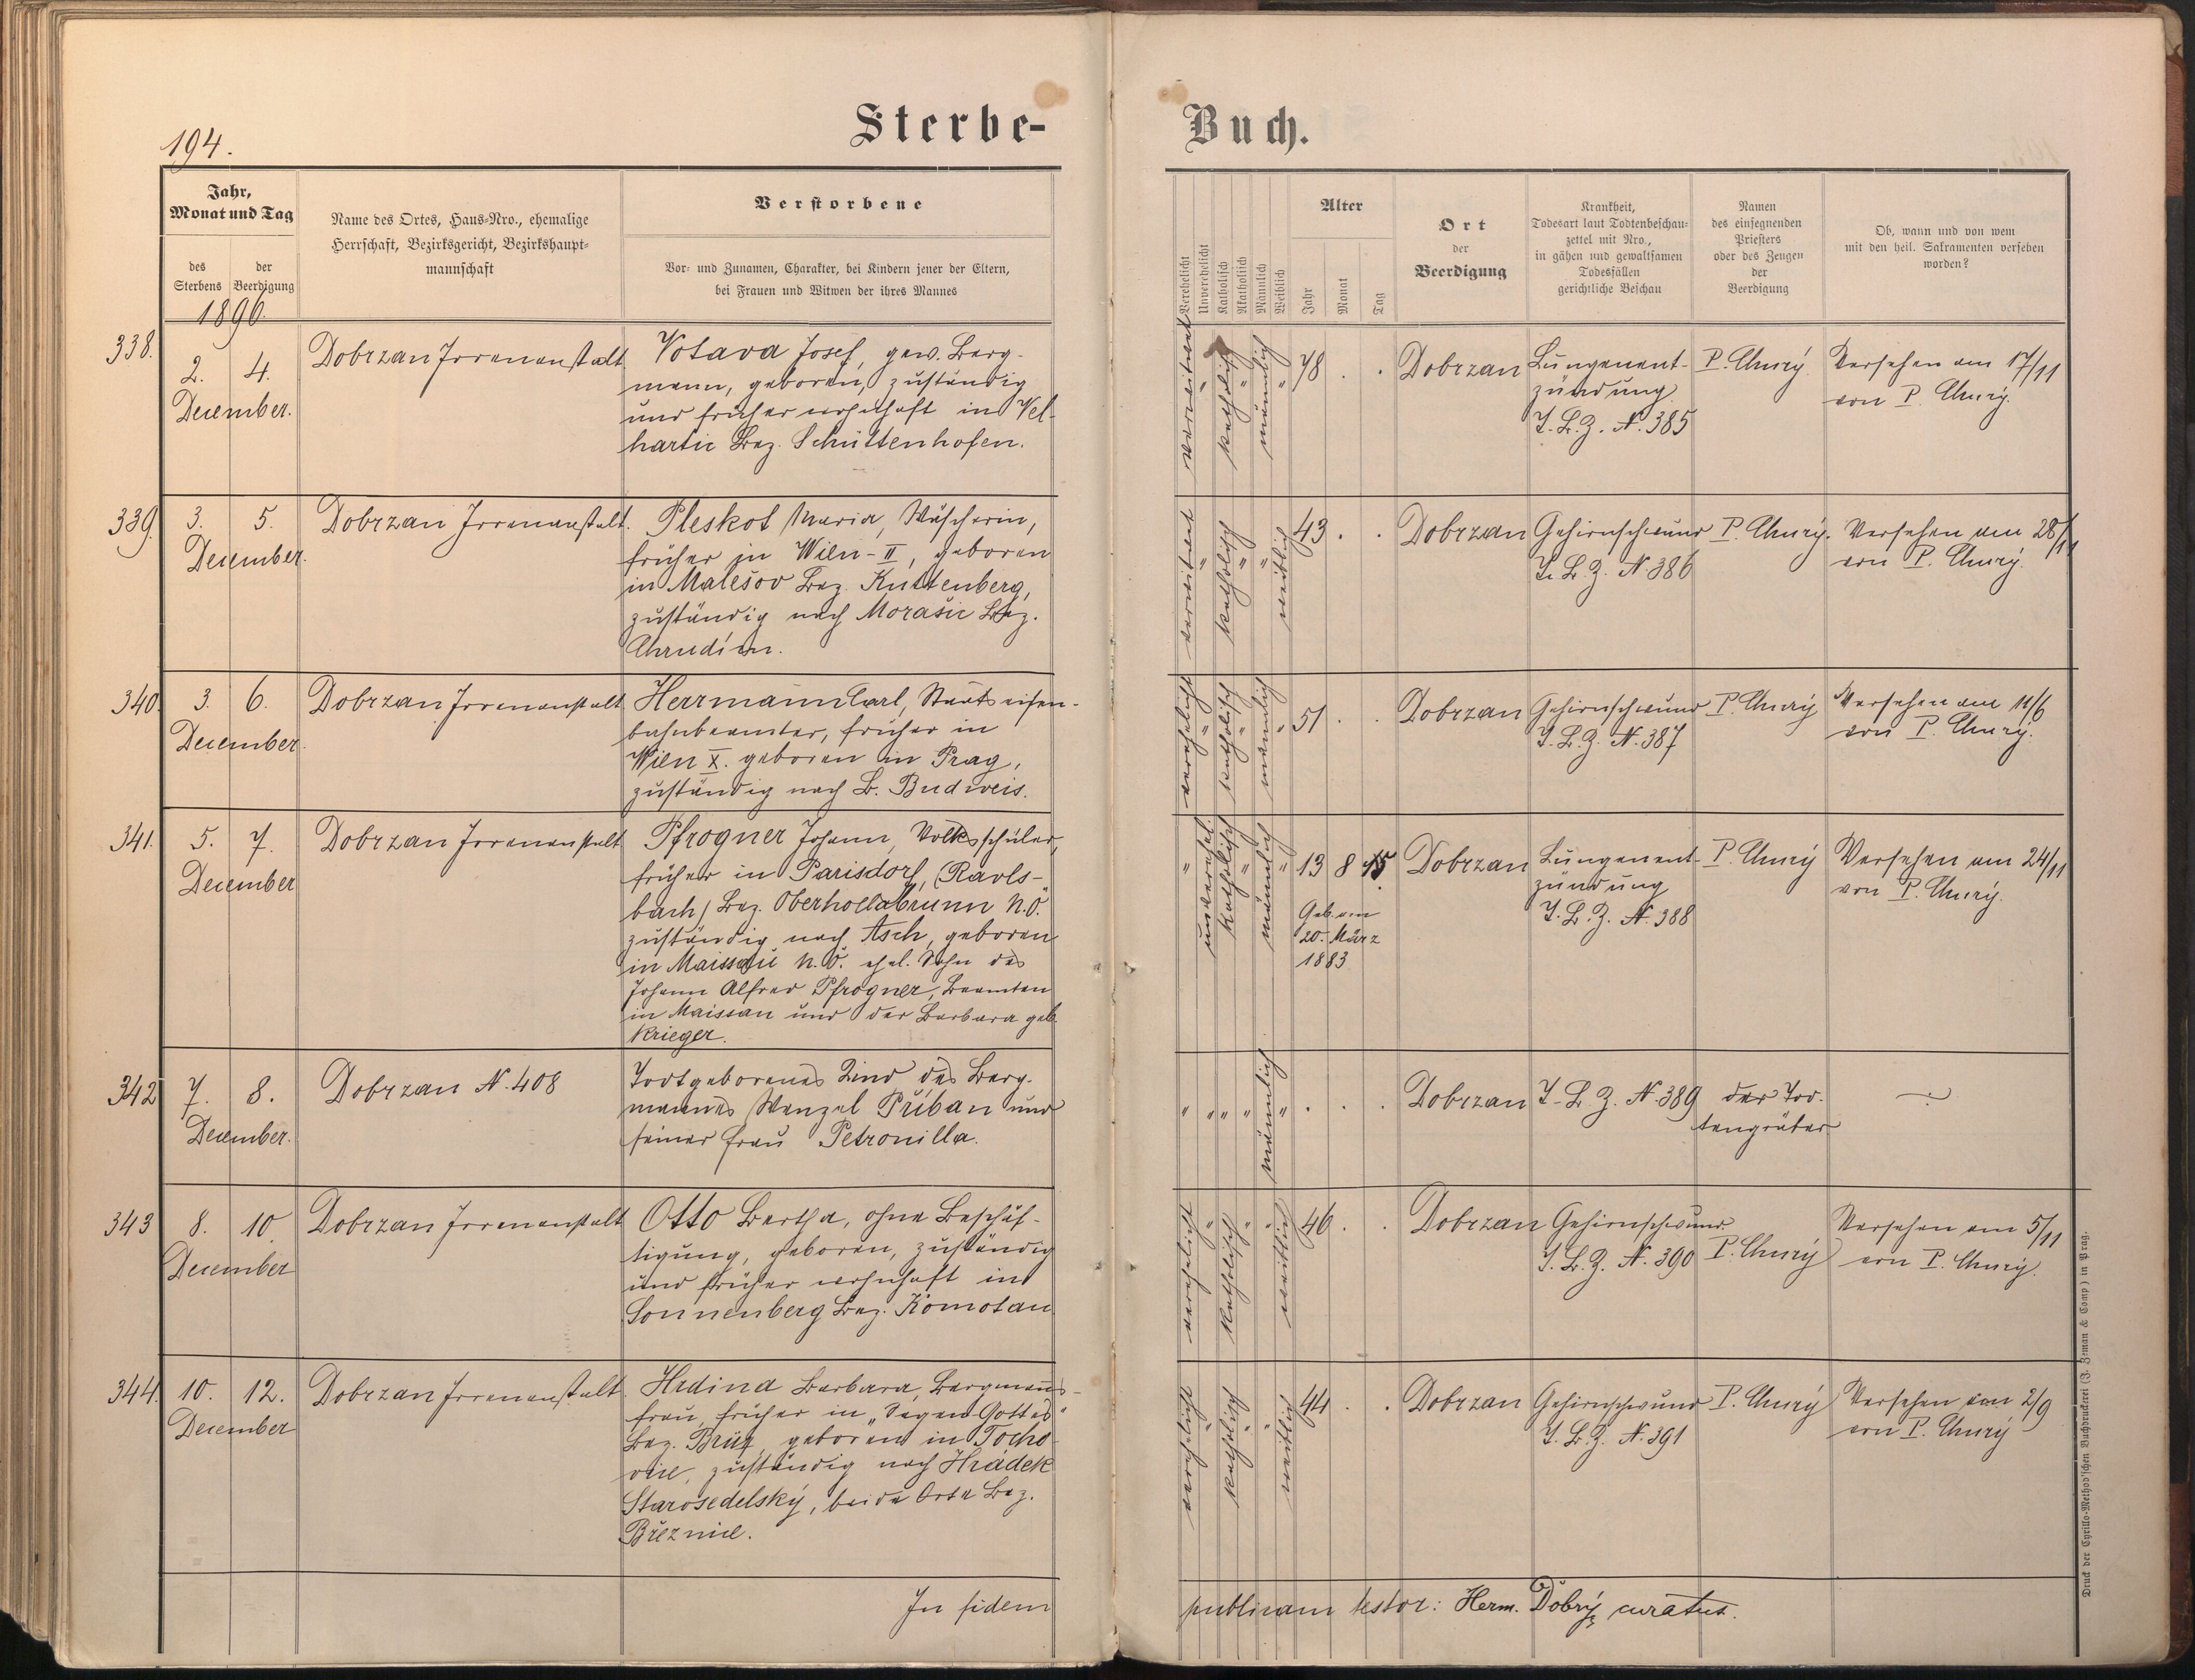 194.
Sterbe-
Buch.
Jahr,
Monat und Tag
des
Sterbens
der
Beerdigung
1896.
Name des Ortes, Haus-Nro., ehemalige
Herrschaft, Bezirksgericht, Bezirkshaupt-
mannschaft
Verstorbene
Vor- und Zunamen, Charakter, bei Kindern jener der Eltern,
bei Frauen und Witwen der ihres Mannes
Verehelicht
Unverehelicht
Katholisch
Akatholisch
Männlich
Weiblich
Alter
Jahr
Monat
Tag
Ort
der
Beerdigung
Krankheit,
Todesart laut Todtenbeschau-
zettel mit Nro.,
in gähen und gewaltsamen
Todesfällen
gerichtliche Beschau
Namen
des einsegnenden
Priesters
oder des Zeugen
der
Beerdigung
Ob, wann und von wem
mit den heil. Sakramenten versehen
worden?
338.
2. 4.
December.
Dobrzan Irrenanstalt
Votava Josef, gew. Berg-
mann, geboren, zuständig
und früher wohnhaft in Vel-
hartic Bez. Schüttenhofen.
verwitwet " katholisch " männlich "
78 . .
Dobrzan
Lungenent-
zündung
T. B. Z. N. 385
P. Churý
Versehen am 17/11
von P. Churý.
339.
3. 5.
December.
Dobrzan Irrenanstalt.
Pleskot Maria, Wäscherin,
früher in Wien-II, geboren
in Malešov Bez. Kuttenberg,
zuständig nach Morašic Bez.
Chrudim.
verwitwet " katholisch " " weiblich
43 . .
Dobrzan
Gehirnschwund
T. B. Z. N. 386
P. Churý.
Versehen am 28/11
von P. Churý.
340.
3. 6.
December.
Dobrzan Irrenanstalt
Herrmann Carl, Staatseisen-
bahnbeamter, früher in
Wien X. geboren in Prag,
zuständig nach B. Budweis.
verehelicht " katholisch " männlich "
51 . .
Dobrzan
Gehirnschwund
T. B. Z. N. 387
P. Churý
Versehen am 11/6
von P. Churý.
341.
5. 7.
December
Dobrzan Irrenanstalt
Pfrogner Johann, Volksschüler,
früher in Parisdorf, (Ravls-
bach) Bez. Oberhollabrunn N.Ö.
zuständig nach Asch, geboren
in Maissau N.Ö. ehel. Sohn des
Johann Alfred Pfrogner, Beamten
in Maissau und der Barbara geb.
Krieger.
" unverehel. katholisch " männlich "
13 8 15
Geb. am
20. März
1883
Dobrzan
Lungenent-
zündung
T. B. Z. N. 388
P. Churý
Versehen am 24/11
von P. Churý.
342
7. 8.
December.
Dobrzan N. 408
Todtgeborenes Kind des Berg-
mannes Wenzel Příban und
seiner Frau Petronilla.
" " " " männlich "
. . .
Dobrzan
T. B. Z. N. 389
der Tod-
tengräber
343
8. 10.
December
Dobrzan Irrenanstalt
Otto Bertha, ohne Beschäf-
tigung, geboren, zuständig
und früher wohnhaft in
Sonnenberg Bez. Komotau
verehelicht " katholisch " " weiblich
46 . .
Dobrzan
Gehirnschwund
T. B. Z. N. 390
P. Churý
Versehen am 5/11
von P. Churý.
344.
10. 12.
December
Dobrzan Irrenanstalt.
Hrdina Barbara, Bergmanns-
frau, früher in „Segen Gottes"
Bez. Brüx, geboren in Tocho-
vic, zuständig nach Hrádek
Starosedelský, beide Orte Bez.
Březnic.
verehelicht " katholisch " " weiblich
44 . .
Dobrzan
Gehirnschwund
T. B. Z. N. 391
P. Churý
Versehen am 2/9
von P. Churý
In fidem
publicam testor: Herm. Dobrý, curatus.
Druck der Cyrillo-Method'schen Buchdruckerei (J. Zeman & Comp.) in Prag.